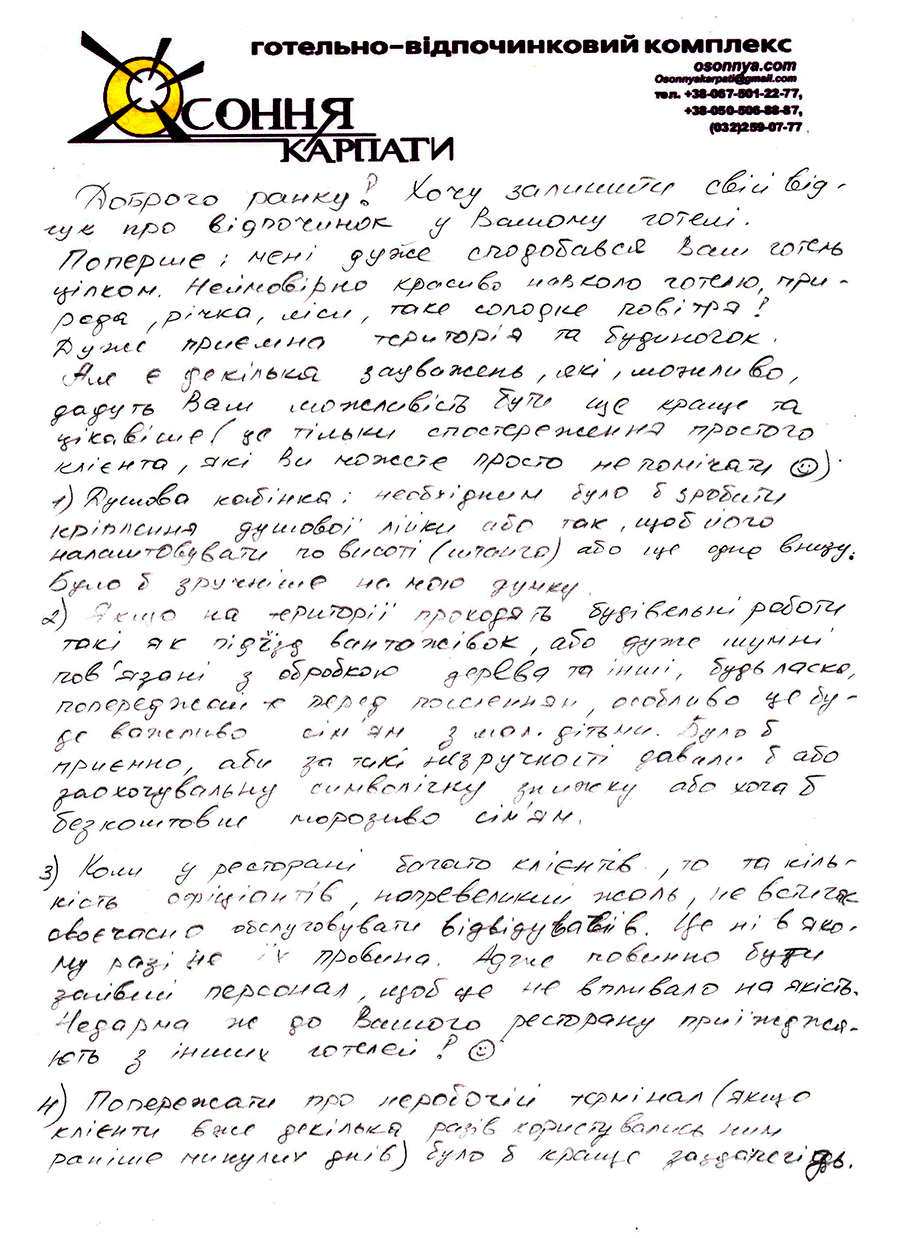 готельно-відпочинковий комплекс
osonnya.com
Osonnyakarpati@gmail.com
тел. +38-067-501-22-77,
+38-050-506-88-87,
(032)259-07-77
Осоння
Карпати
Доброго ранку! Хочу залишити свій від-
гук про відпочинок у Вашому готелі.
Поперше: мені дуже сподобався Ваш готель
цілком. Неймовірно красиво навколо готелю, при-
рода, річка, ліси, таке солодке повітря!
Дуже приємна територія та будиночок.
Але є декілька зауважень, які, можливо,
дадуть Вам можливість бути ще краще та
цікавіше (це тільки спостереження простого
клієнта, які Ви можете просто не помічати ☺):
1) Душова кабінка: необхідним було б зробити
кріплення душової лійки або так, щоб його
налаштовувати по висоті (штанга) або ще одне внизу.
Було б зручніше на мою думку.
2) Якщо на території проходять будівельні роботи
такі як під'їзд вантажівок, або дуже шумні
пов'язані з обробкою дерева та інші, будь ласка,
попереджайте перед поселенням, особливо це бу-
де важливо сім'ям з мал. дітьми. Було б
приємно, аби за такі незручності давали б або
заохочувальну символічну знижку або хоча б
безкоштовне морозиво сім'ям.
3) Коли у ресторані багато клієнтів, то та кіль-
кість офіціантів, напревеликий жаль, не встигає
своєчасно обслуговувати відвідувачів. Це ні в яко-
му разі не їх провина. Адже повинно бути
зайвий персонал, щоб це не впливало на якість.
Недарма ж до Вашого ресторану приїжджа-
ють з інших готелей! ☺
4) Попережати про неробочій термінал (якщо
клієнти вже декілька разів користувались ним
раніше минулих днів) було б краще заздалегідь.